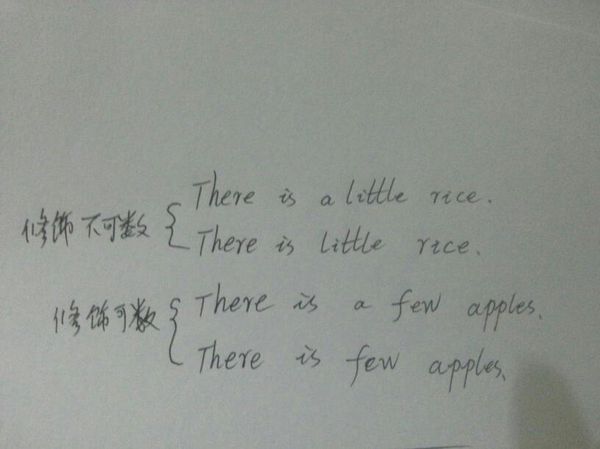 修饰不可数 { There is a little rice.
There is little rice.
修饰可数 { There is a few apples.
There is few apples.